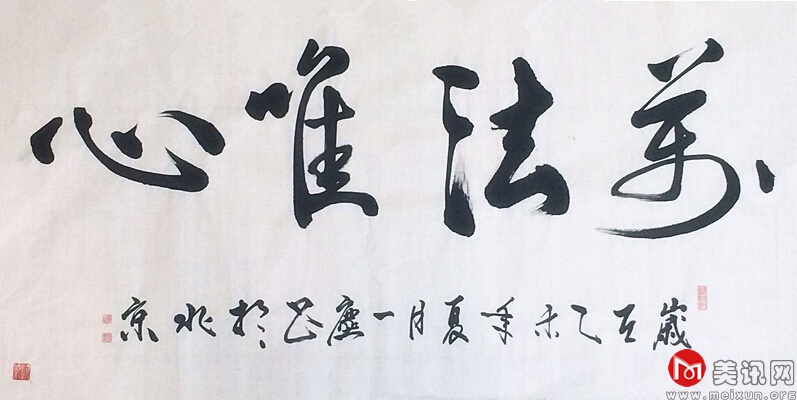 萬法唯心
歲在乙未年夏月一塵書於北京
美讯网
www.meixun.org